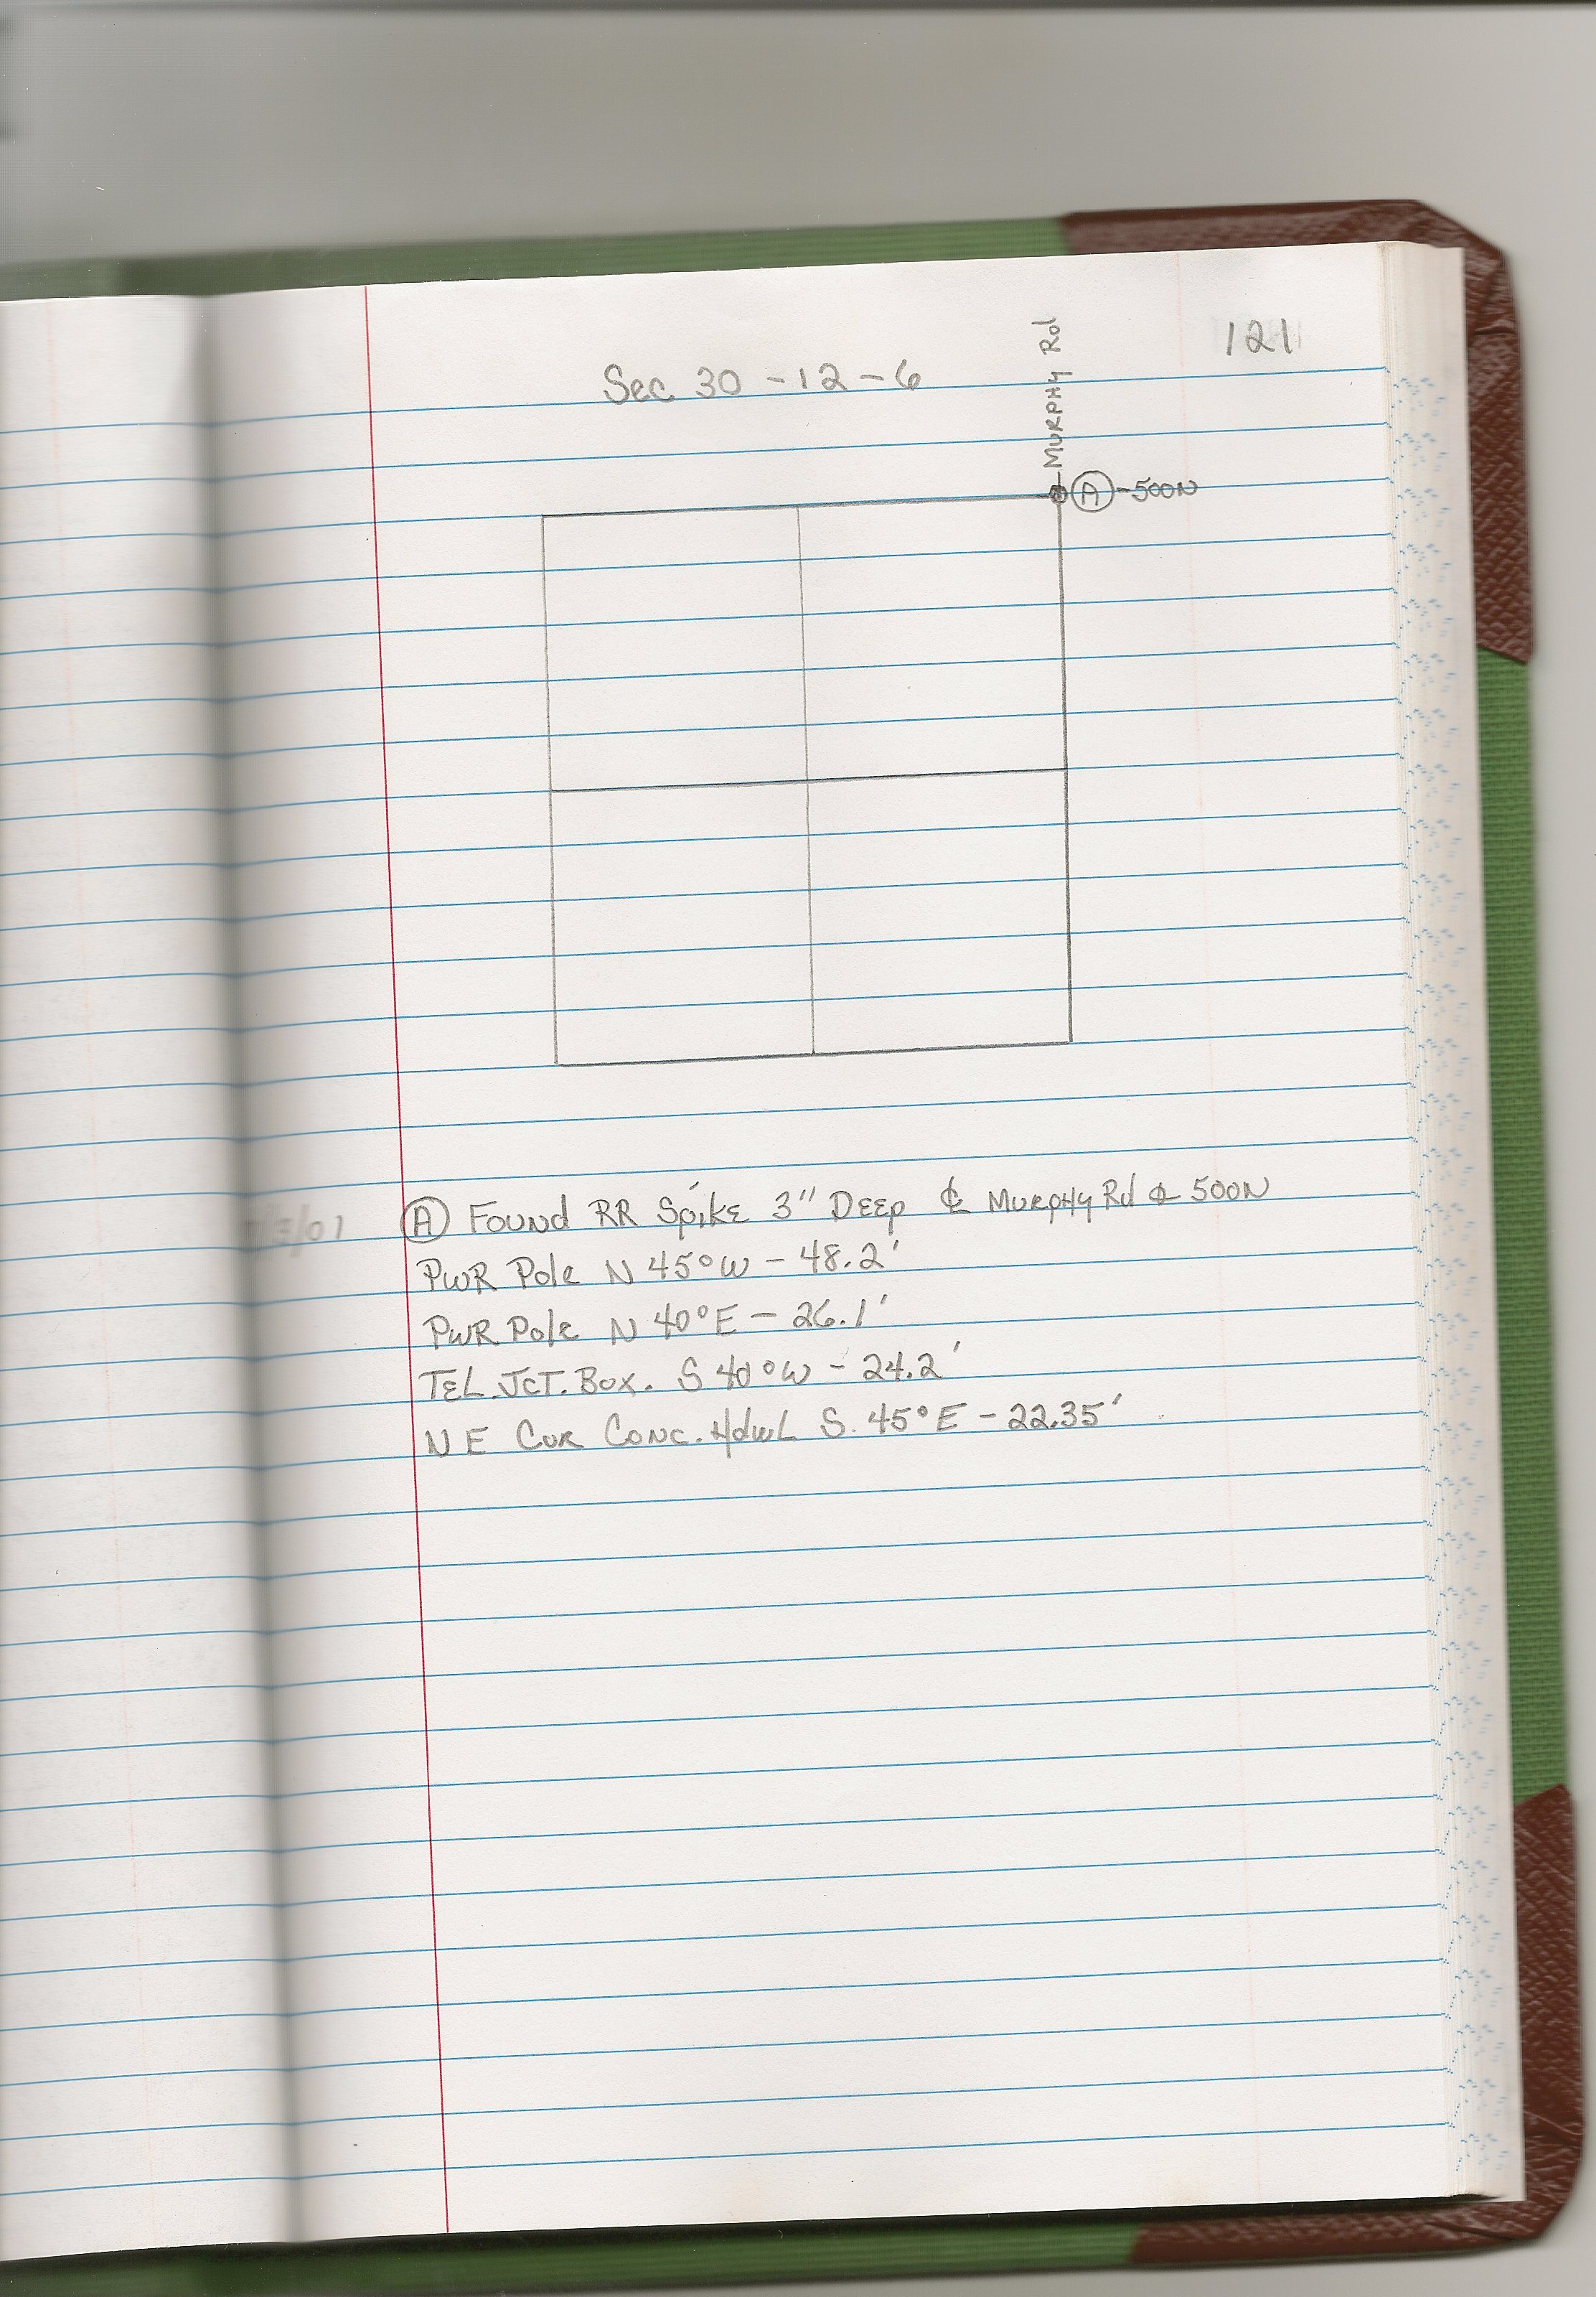 121
Sec 30-12-6
Murphy Rd
A -500N
/01 A Found RR Spike 3" Deep ℄ Murphy Rd & 500N
PWR Pole N 45° W - 48.2'
PWR Pole N 40° E - 26.1'
TEL. JCT. Box. S 40° W - 24.2'
N E Cor Conc. Hdwl S. 45° E - 22.35'